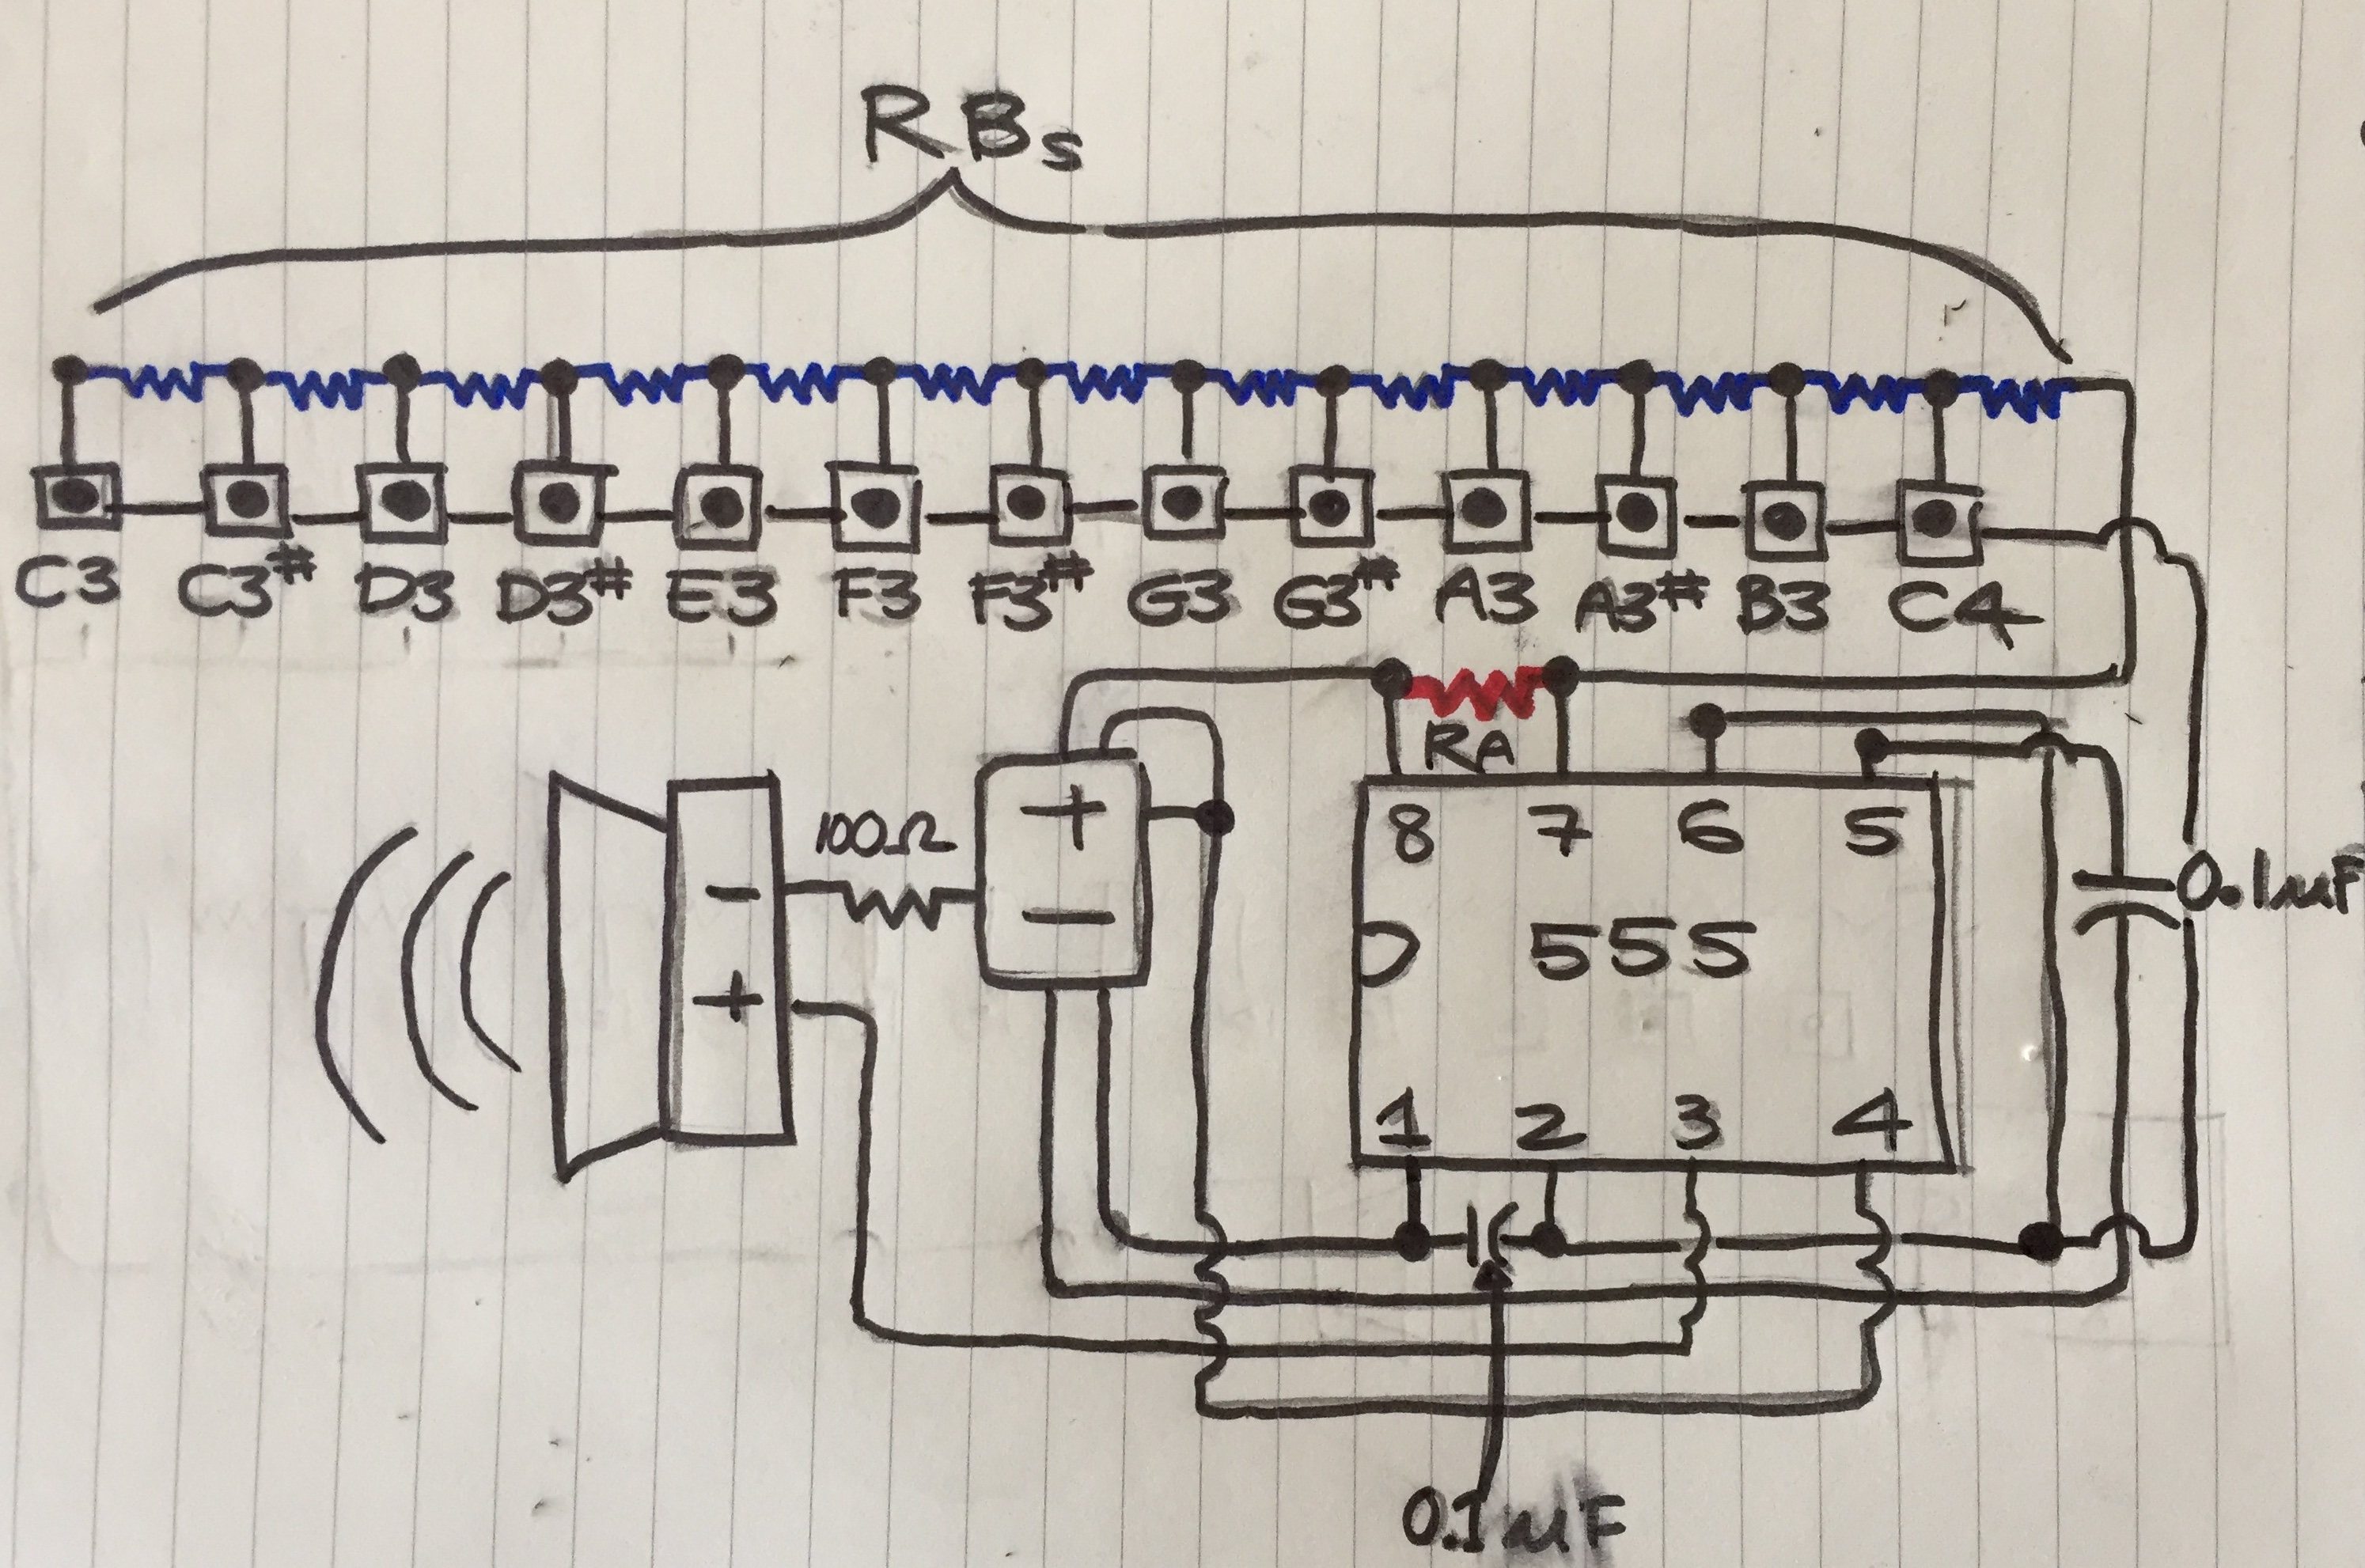 RBs
C3 C3# D3 D3# E3 F3 F3# G3 G3# A3 A3# B3 C4
RA
100Ω
+
8 7 6 5
−
−
0.1µF
555
+
1 2 3 4
0.1µF